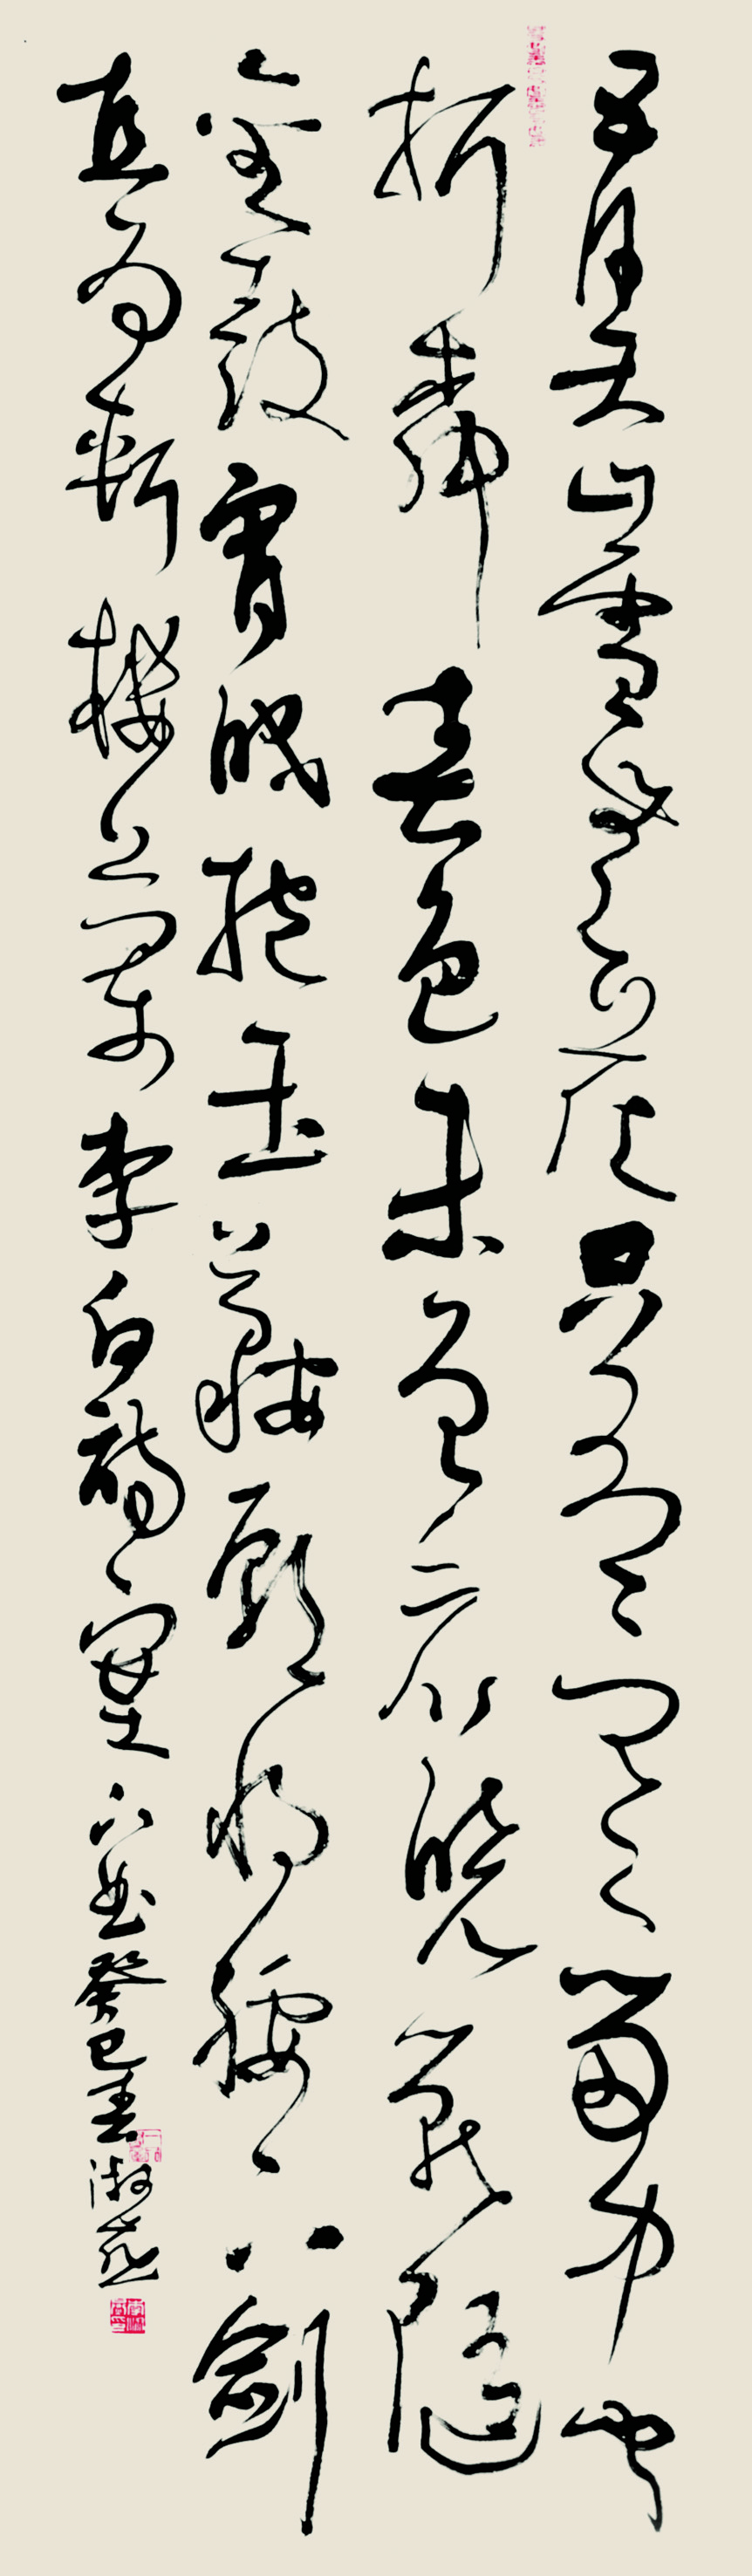 五月天山雪無花只有寒笛中聞
折柳春色未曾看曉戰隨
金鼓宵眠抱玉鞍願將腰下劍
直為斬樓蘭李白詩塞下曲癸巳春淑燕